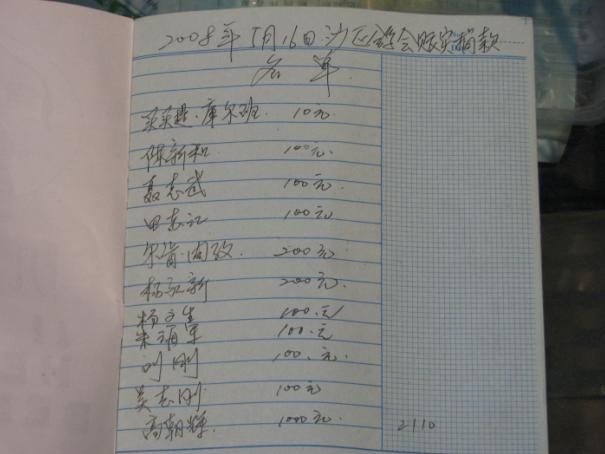 2008年5月16日沙区会赈灾捐款
名单
库尔班 10元
陈新和 100元.
聂志武 100元.
田志江 100元.
200元
杨新 200元.
杨文生 100.元
朱军 100.元
刘刚 100.元.
吴志刚 100元
高朝辉. 1000元.
2110